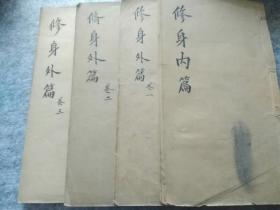 修身內篇
修身外篇
卷一
修身外篇
卷二
修身外篇
卷三